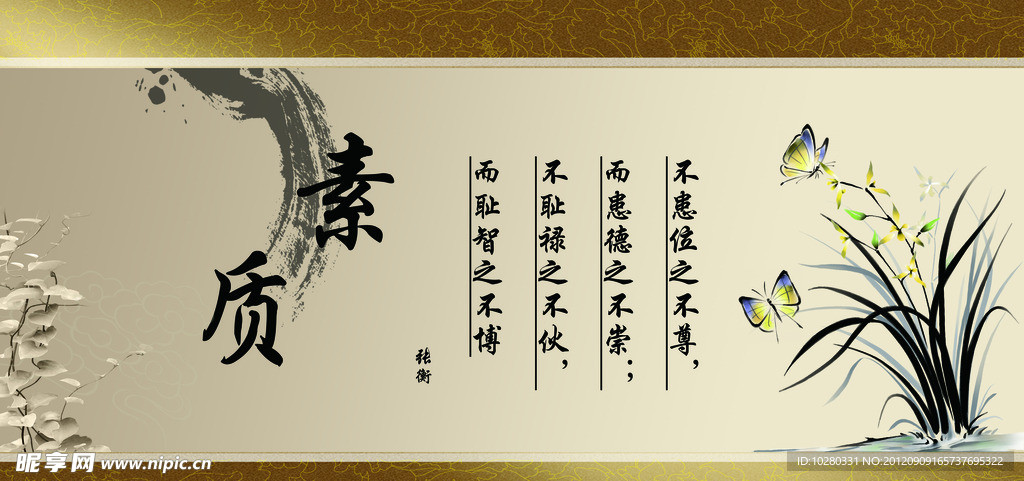 素质
不患位之不尊，
而患德之不崇；
不耻禄之不伙，
而耻智之不博
张衡
昵享网 www.nipic.cn
ID:10280331 NO:20120909165737695322